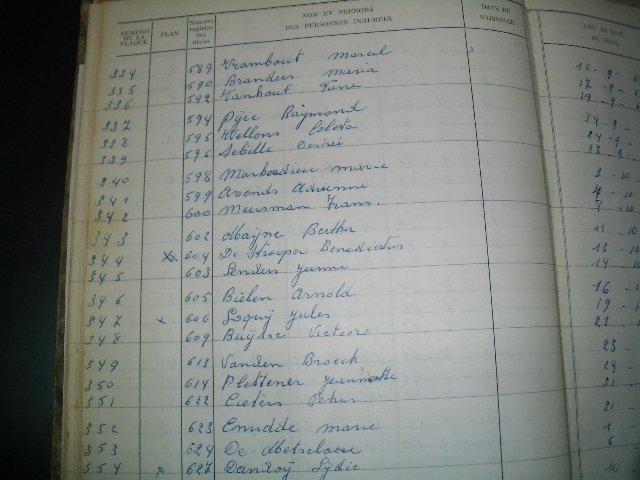 NUMÉRO DE LA PLAQUE PLAN Numéro registre des décès NOM ET PRÉNOMS DES PERSONNES INHUMÉES DATE DE NAISSANCE LIEU ET DATE
334 589 Wrambout Marcel 16-9-
335 590 Branders Maria 17-9-
336 592 Vanhout 19-9-
337 594 Pÿre Raymond 24-9-
338 595 Wellens 24-9-
339 596 Sebille Désirée 27 9
340 598 Markadieu Marie 3-10-
341 599 Avonds Adrienne 4-10
342 600 Meersman Frans. 9-10
343 602 Maÿne Bertha 11-10
344 604 De Strooper Benedictus 13-10
345 603 Senden Jeanne 14-10
346 605 Bielen Arnold 16-1
347 x 606 Loquÿ Jules 19-1
348 609 Buÿsse Victoor 21
349 613 Vanden Broeck 23
350 614 Plettener Jeannette
351 622 Cieters Petrus 31
352 623 Cnudde Marie 1
353 624 De 6
354 627 Danroÿ Lÿdie 10